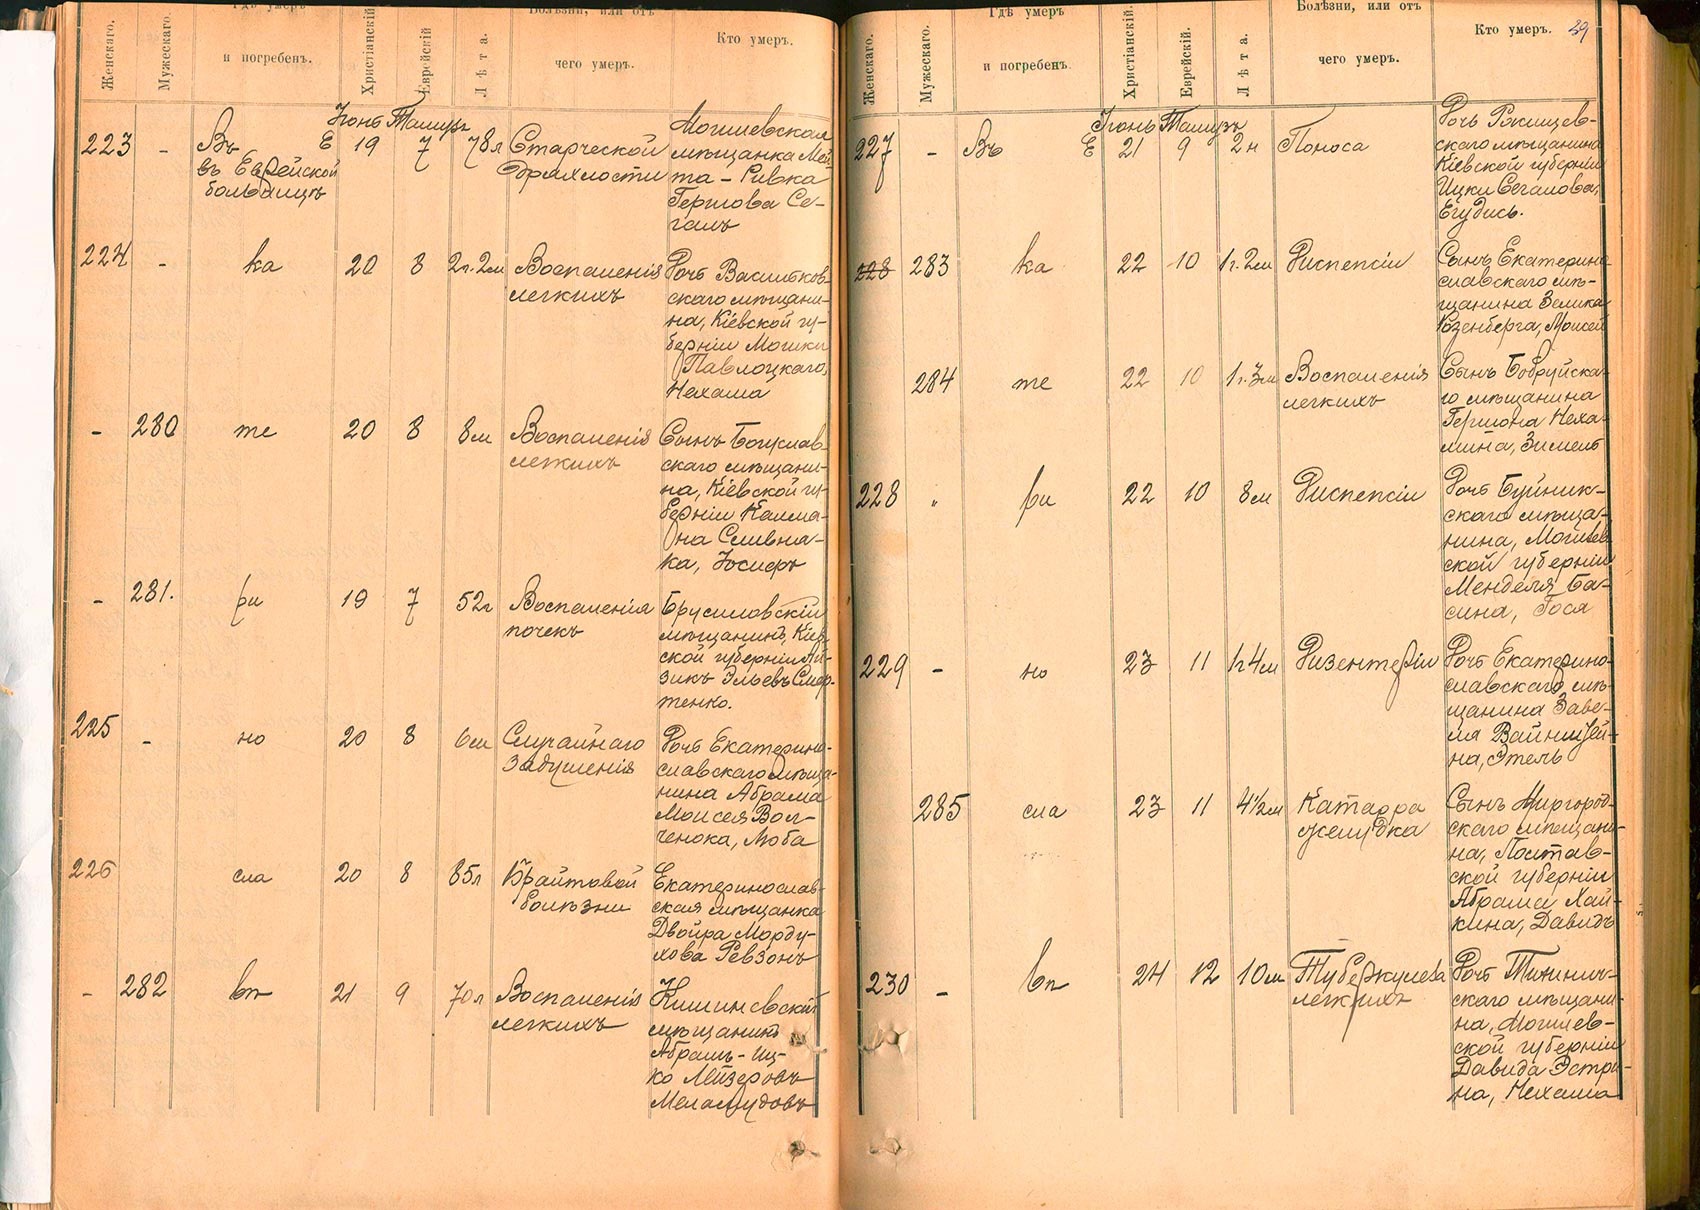 Женскаго.
Мужескаго.
Гдѣ умеръ
и погребенъ.
Христіанскій
Еврейскій
Лѣта.
Болѣзни, или отъ
чего умеръ.
Кто умеръ.
Іюнь Тамузъ
223 - Въ Е 19 7 78л Старческой
въ Еврейской дряхлости
больницѣ
Могилевская
мѣщанка Мей-
та - Ривка
Гершова Се-
галъ
224 - ка 20 8 2г. 2м Воспаленія
легкихъ
Дочь Васильков-
скаго мѣщани-
на, Кіевской гу-
берніи Мошки
Павлоцкаго,
Нехама
- 280 те 20 8 8м Воспаленія
легкихъ
Сынъ Богуслав-
скаго мѣщани-
на, Кіевской гу-
берніи Калма-
на Сливня-
ка, Іосифъ
- 281. ри 19 7 52г Воспаленія
почекъ
Брусиловскій
мѣщанинъ, Кіев-
ской губерніи Ай-
зикъ Эльевъ
тенко.
225 - но 20 8 6м Случайнаго
задушенія
Дочь Екатерино-
славскаго мѣща-
нина Абрама
Моисея Вол-
ченока, Люба
226 сла 20 8 85л Брайтовой
болѣзни
Екатеринослав-
ская мѣщанка
Двойра Морду-
хова Ревзонъ
- 282 вѣ 21 9 70л Воспаленія
легкихъ
Кишиневскій
мѣщанинъ
Абрамъ - Иц-
ко Лейзеровъ
Меламудовъ
39
Женскаго.
Мужескаго.
Гдѣ умеръ
и погребенъ.
Христіанскій.
Еврейскій.
Лѣта.
Болѣзни, или отъ
чего умеръ.
Кто умеръ.
Іюнь Тамузъ
227 - Въ Е 21 9 2н Поноса
Дочь Ракищев-
скаго мѣщанина
Кіевской губерніи
Ицки Сегалова,
Егудись.
228 283 ка 22 10 1г. 2м Диспепсіи
Сынъ Екатерино-
славскаго мѣ-
щанина Зелика
Розенберга, Моисей
284 те 22 10 1г. 3м Воспаленія
легкихъ
Сынъ Бобруйска-
го мѣщанина
Гершона Неха-
мина,
228 " ри 22 10 8м Диспепсіи
Дочь Буйник-
скаго мѣща-
нина, Могилев-
ской губерніи
Менделя Ба-
сина, Гося
229 - но 23 11 1г 4м Дизентеріи
Дочь Екатерино-
славскаго мѣ-
щанина Заве-
ля Вайнштей-
на, Этель
285 сла 23 11 4½м Катарра
желудка
Сынъ Миргород-
скаго мѣщани-
на, Полтав-
ской губерніи
Абрама Хай-
кина, Давидъ
230 - вѣ 24 12 10м Туберкулеза
легкихъ
Дочь
скаго мѣщани-
на, Могилев-
ской губерніи
Давида Эстри-
на, Нехама